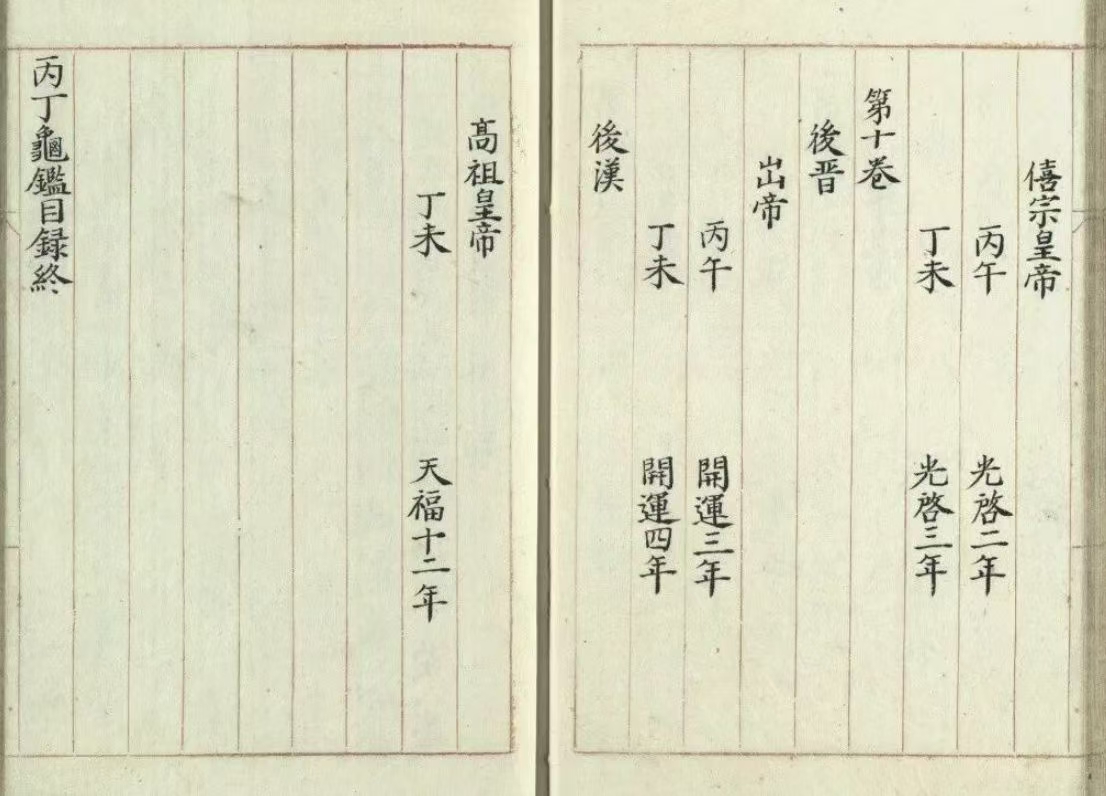 僖宗皇帝
丙午 光啓二年
丁未 光啓三年
第十卷
後晋
出帝
丙午 開運三年
丁未 開運四年
後漢
高祖皇帝
丁未 天福十二年
丙丁龜鑑目録終